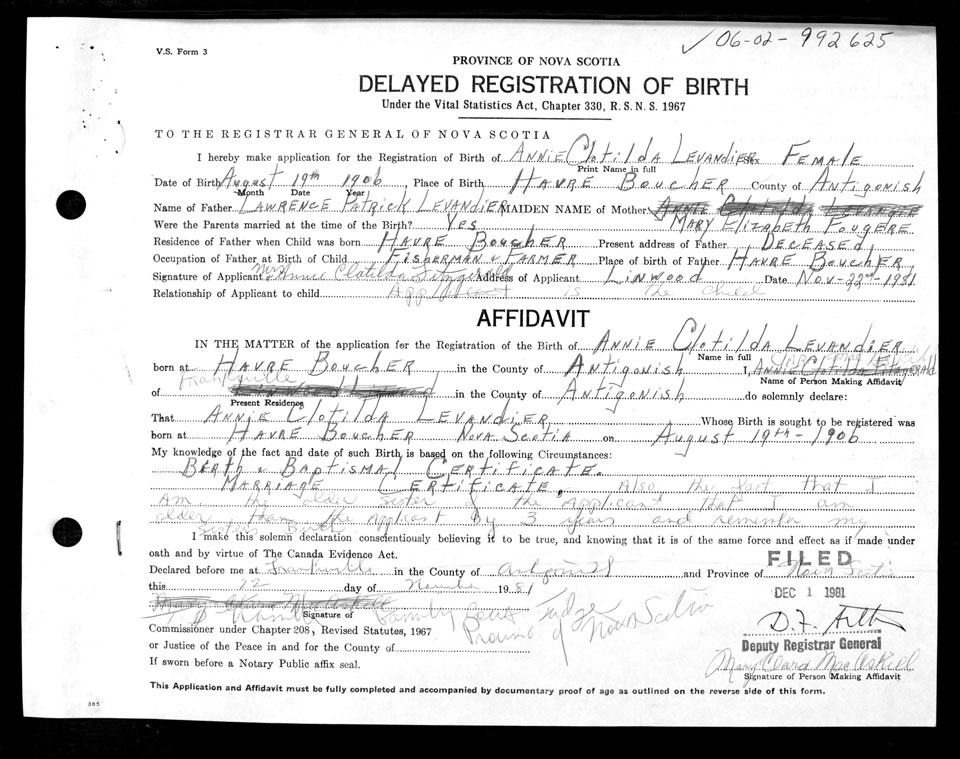 ✓ 06-02-992625
V.S. Form 3
PROVINCE OF NOVA SCOTIA
DELAYED REGISTRATION OF BIRTH
Under the Vital Statistics Act, Chapter 330, R.S.N.S. 1967
TO THE REGISTRAR GENERAL OF NOVA SCOTIA
I hereby make application for the Registration of Birth of ANNIE Clotilda LEVANDIER Sex FEMALE
Print Name in full
Date of Birth August 19th 1906 Place of Birth HAVRE BOUCHER County of Antigonish
Month Date Year
Name of Father LAWRENCE PATRICK LEVANDIER MAIDEN NAME of Mother ANNIE Clotilda LEVANGIE
Were the Parents married at the time of the Birth? Yes MARY Elizabeth FOUGERE
Residence of Father when Child was born HAVRE BOUCHER Present address of Father DECEASED
Occupation of Father at Birth of Child FISHERMAN & FARMER Place of birth of Father HAVRE BOUCHER
Signature of Applicant Mrs Annie Clotilda Fitzgerald Address of Applicant LINWOOD Date Nov-22nd-1981
Relationship of Applicant to child Applicant is the child
AFFIDAVIT
IN THE MATTER of the application for the Registration of the Birth of ANNIE Clotilda LEVANDIER
Name in full
born at HAVRE BOUCHER in the County of ANtigoNish I, ANNIE Clotilda Fitzgerald
Name of Person Making Affidavit
Frankville
of in the County of Antigonish do solemnly declare:
Present Residence
That ANNIE Clotilda LEVANDIER Whose Birth is sought to be registered was
born at HAVRE BOUCHER NOVA SCOTIA on August 19th-1906
My knowledge of the fact and date of such Birth is based on the following Circumstances:
Birth & Baptismal Certificate.
MARRIAGE CERTIFICATE. Also the fact that I
Am the older sister of the applicant that I am
older than the applicant by 3 years and remember my
sisters Birth
I make this solemn declaration conscientiously believing it to be true, and knowing that it is of the same force and effect as if made under
oath and by virtue of The Canada Evidence Act.
FILED
Declared before me at Frankville in the County of Antigonish and Province of Nova Scotia
this 22 day of November 1981
DEC 1 1981
Mary Clara MacAskill
Signature of Family Court Judge
Province of Nova Scotia
Commissioner under Chapter 208, Revised Statutes, 1967
or Justice of the Peace in and for the County of
If sworn before a Notary Public affix seal.
Deputy Registrar General
Mary Clara MacAskill
Signature of Person Making Affidavit
This Application and Affidavit must be fully completed and accompanied by documentary proof of age as outlined on the reverse side of this form.
385